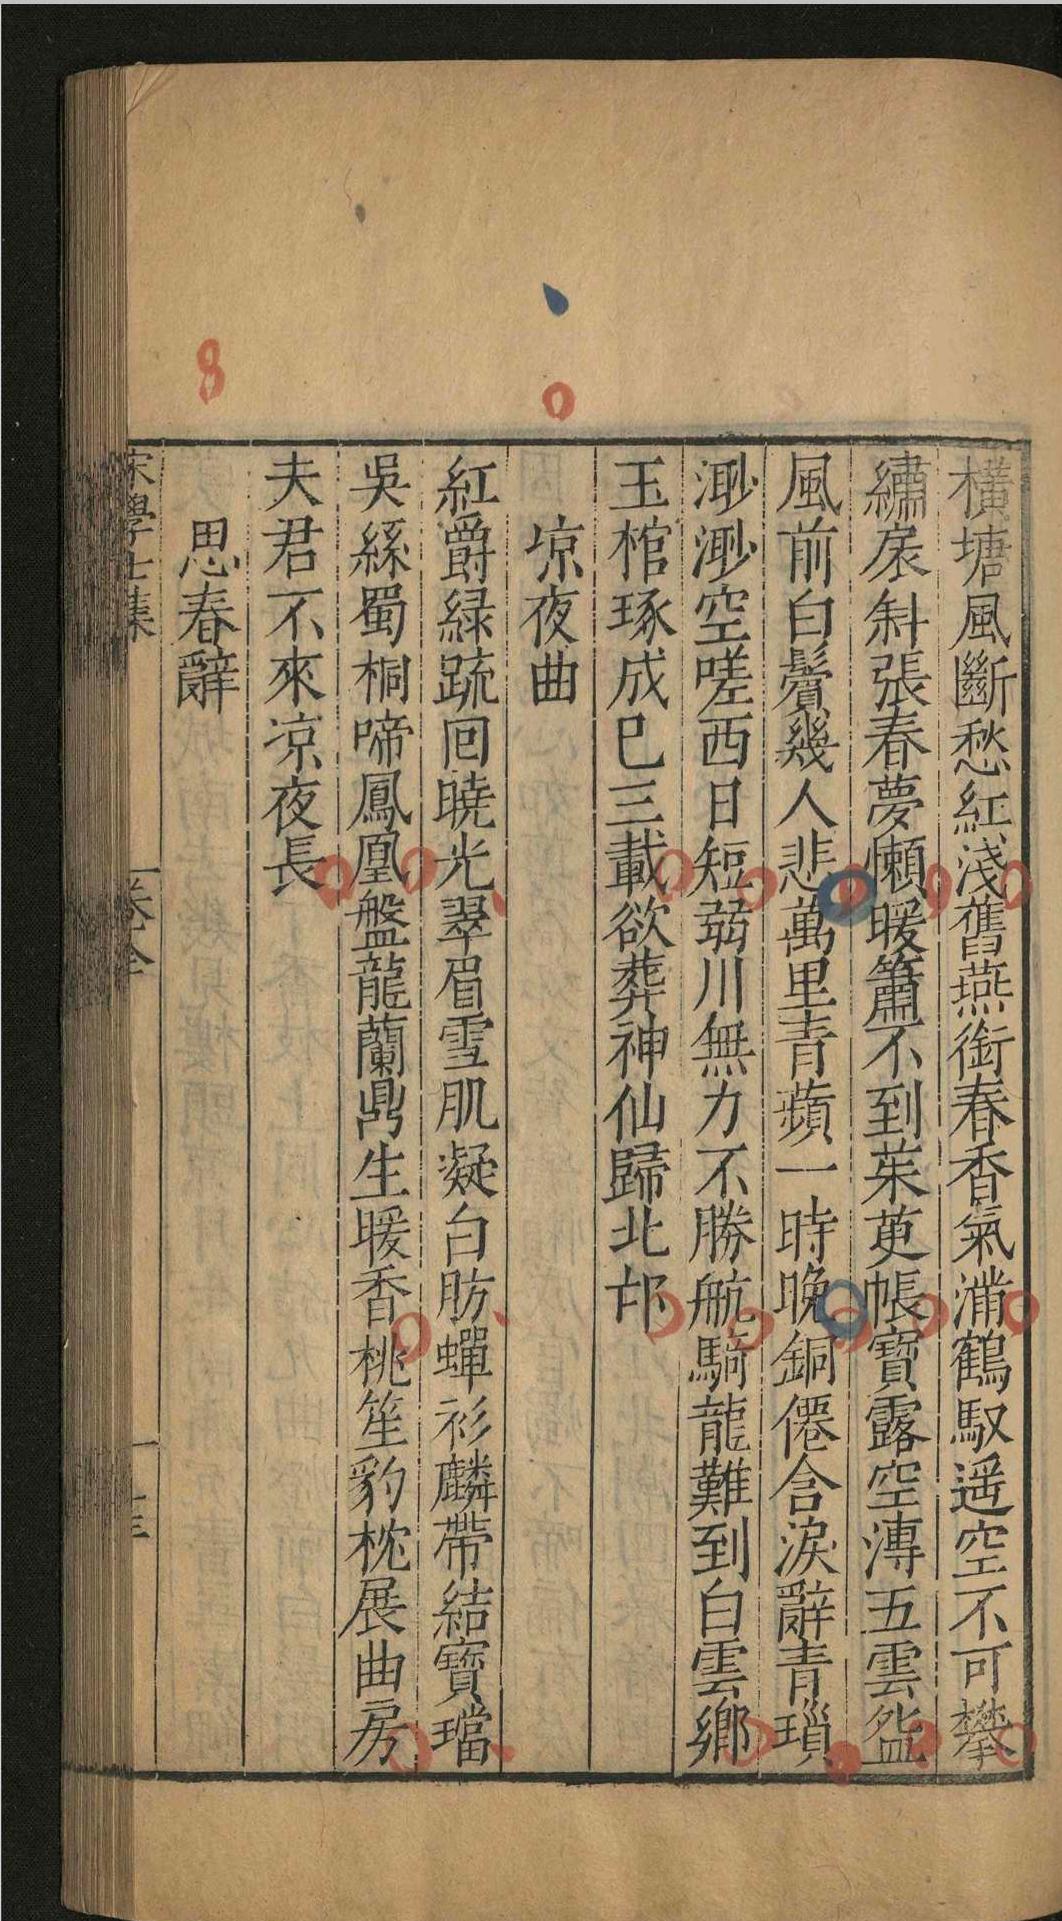 橫塘風斷愁紅淺舊燕銜春香氣滿鶴馭遥空不可攀
繡扆斜張春夢懶暖簫不到茱萸帳寶露空漙五雲盌
風前白鬢幾人悲萬里青蘋一時晚銅僊含淚辭青瑣
渺渺空嗟西日短弱川無力不勝航騎龍難到白雲鄉
玉棺琢成已三載欲葬神仙歸北邙
凉夜曲
紅爵緑疏回曉光翠眉雪肌凝白肪蟬衫麟帶結寶璫
吳絲蜀桐啼鳳凰盤龍蘭鼎生暖香桃笙豹枕展曲房
夫君不來凉夜長
思春辭
宋學士集
卷全